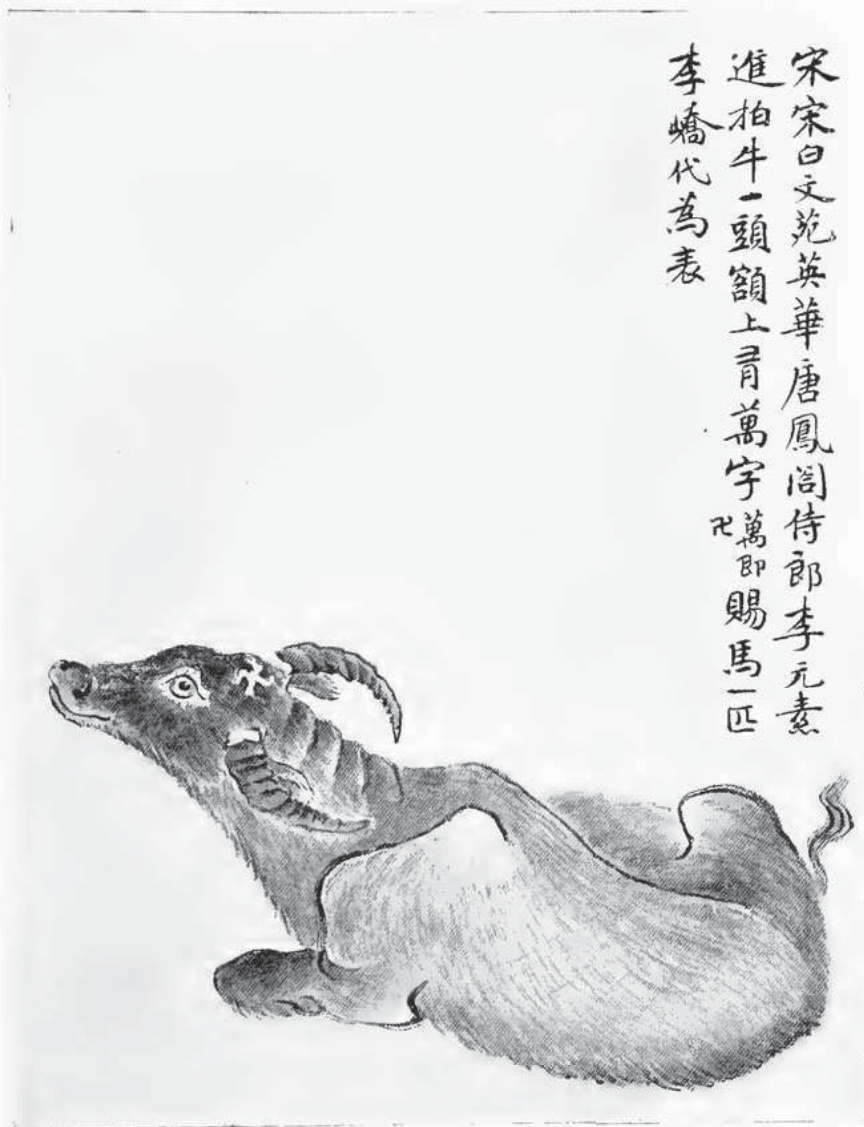 宋宋白文苑英華唐鳳閤侍郎李元素
進柏牛一頭額上有萬字萬即卍賜馬一匹
李嶠代為表